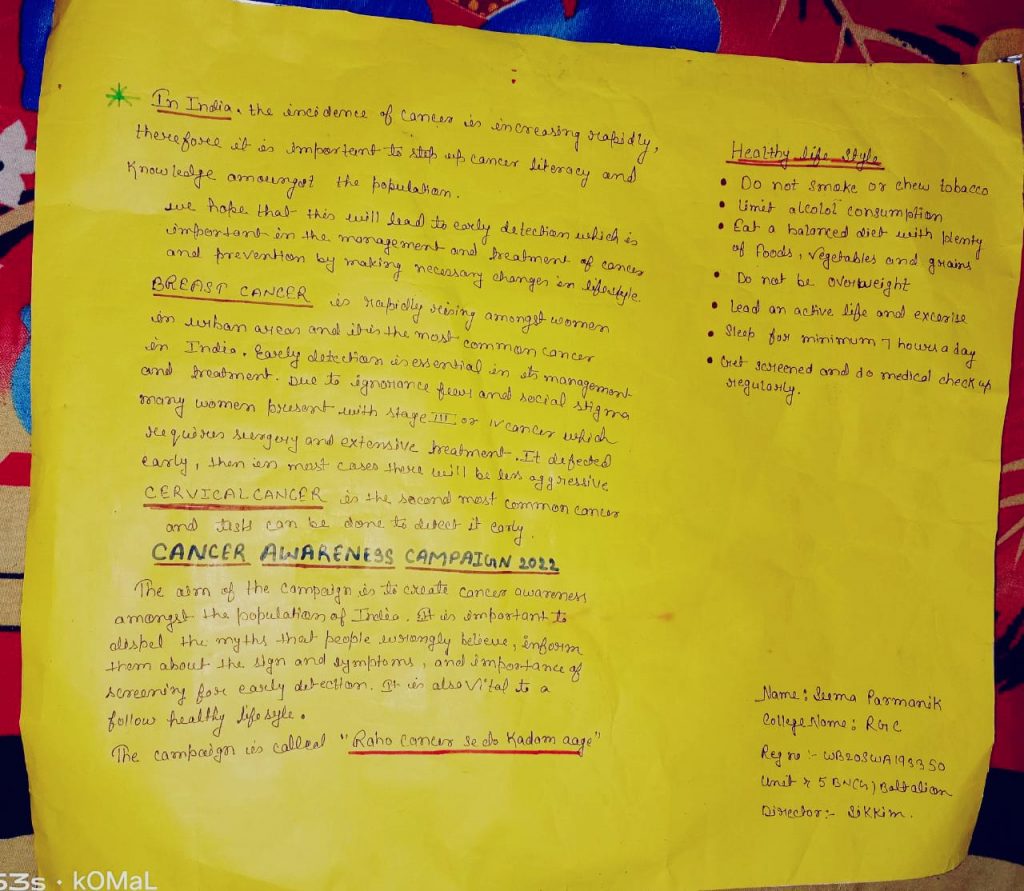 In India. the incidence of cancer is increasing rapidly,
therefore it is important to step up cancer literacy and
Knowledge amoungst the population.
we hope that this will lead to early detection which is
important in the management and treatment of cancer
and prevention by making necessary changes in lifestyle.
BREAST CANCER is rapidly rising amongst women
in urban areas and it is the most common cancer
in India. Early detection is essential in its management
and treatment. Due to ignorance fear and social stigma
many women present with stage III or IV cancer which
requires surgery and extensive treatment. It detected
early, then in most cases there will be less aggressive
CERVICAL CANCER is the second most common cancer
and tests can be done to detect it early.
CANCER AWARENESS CAMPAIGN 2022
The aim of the campaign is to create cancer awareness
amongst the population of India. It is important to
dispel the myths that people wrongly believe, inform
them about the sign and symptoms, and importance of
screening for early detection. It is also vital to a
follow healthy lifestyle.
The campaign is called "Raho cancer se do Kadam aage"
Healthy life style
• Do not smoke or chew tobacco
• limit alcolol consumption
• Eat a balanced diet with plenty
of foods, vegetables and grains
• Do not be overweight
• Lead an active life and excerise
• Sleep for minimum 7 hours a day
• Get screened and do medical check up
regularly.
Name: Seema Parmanik
College Name: RGC
Reg no :- WB20SWA193350
Unit : 5 BN(G) Battalion
Director:- Sikkim.
53s · kOMaL